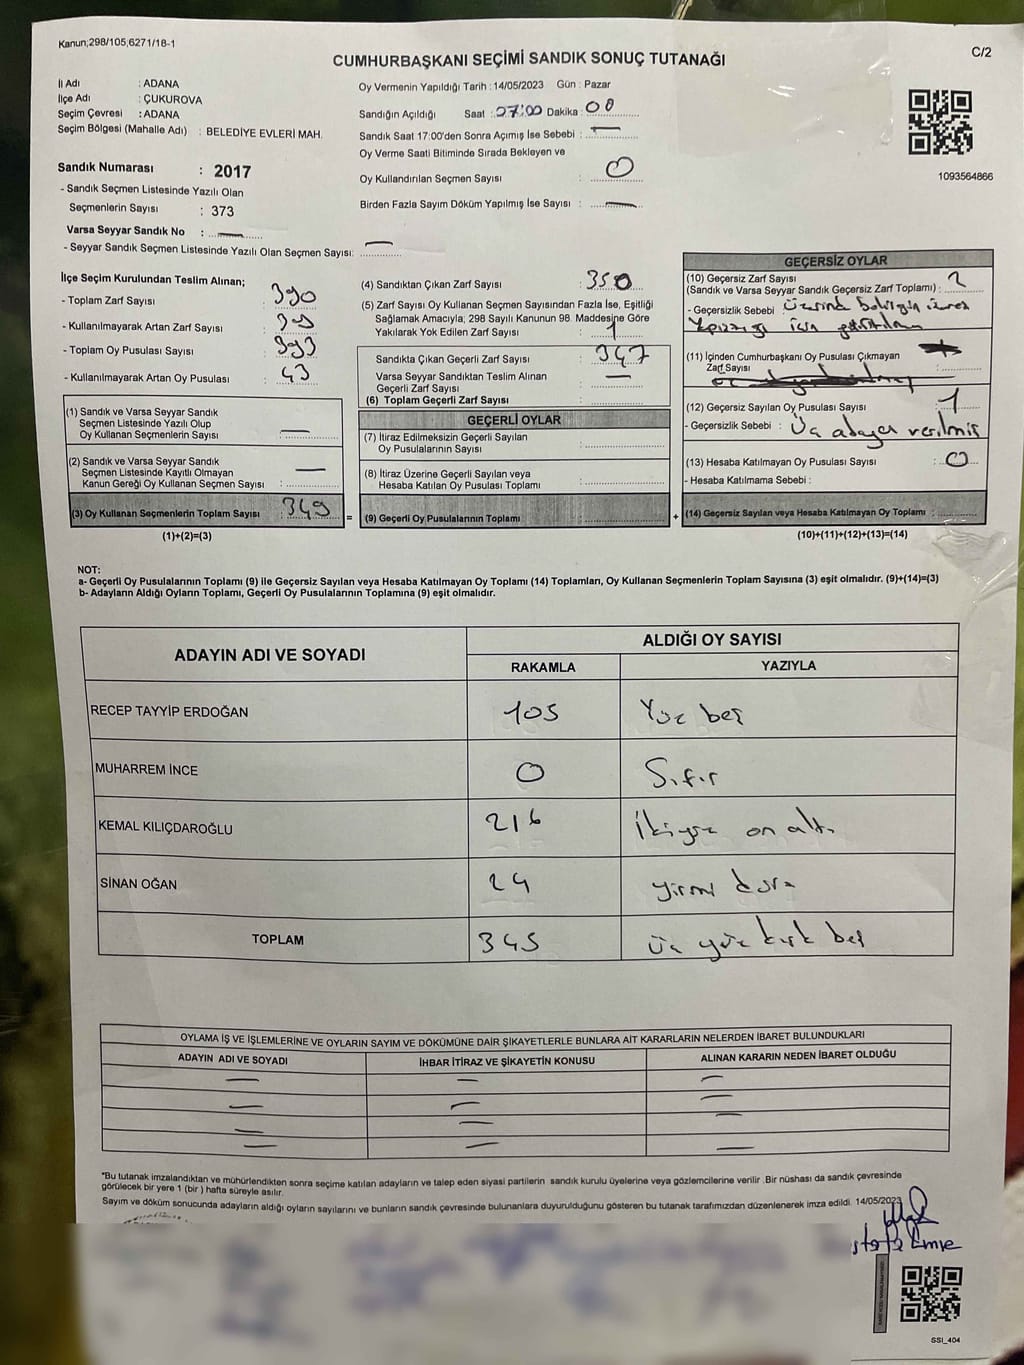 Kanun;298/105;6271/18-1
C/2
CUMHURBAŞKANI SEÇİMİ SANDIK SONUÇ TUTANAĞI
İl Adı : ADANA
İlçe Adı : ÇUKUROVA
Seçim Çevresi : ADANA
Seçim Bölgesi (Mahalle Adı) : BELEDİYE EVLERİ MAH.
Sandık Numarası : 2017
- Sandık Seçmen Listesinde Yazılı Olan
Seçmenlerin Sayısı : 373
Varsa Seyyar Sandık No : —
- Seyyar Sandık Seçmen Listesinde Yazılı Olan Seçmen Sayısı: —
Oy Vermenin Yapıldığı Tarih : 14/05/2023 Gün : Pazar
Sandığın Açıldığı Saat : Dakika :
Sandık Saat 17:00'den Sonra Açımış İse Sebebi : —
Oy Verme Saati Bitiminde Sırada Bekleyen ve
Oy Kullandırılan Seçmen Sayısı : 0
Birden Fazla Sayım Döküm Yapılmış İse Sayısı : —
1093564866
İlçe Seçim Kurulundan Teslim Alınan;
- Toplam Zarf Sayısı : 390
- Kullanılmayarak Artan Zarf Sayısı :
- Toplam Oy Pusulası Sayısı : 393
- Kullanılmayarak Artan Oy Pusulası : 43
(1) Sandık ve Varsa Seyyar Sandık
Seçmen Listesinde Yazılı Olup
Oy Kullanan Seçmenlerin Sayısı : —
(2) Sandık ve Varsa Seyyar Sandık
Seçmen Listesinde Kayıtlı Olmayan
Kanun Gereği Oy Kullanan Seçmen Sayısı : —
(3) Oy Kullanan Seçmenlerin Toplam Sayısı : 349
(1)+(2)=(3)
=
(4) Sandıktan Çıkan Zarf Sayısı : 350
(5) Zarf Sayısı Oy Kullanan Seçmen Sayısından Fazla İse, Eşitliği
Sağlamak Amacıyla; 298 Sayılı Kanunun 98. Maddesine Göre
Yakılarak Yok Edilen Zarf Sayısı : 1
Sandıkta Çıkan Geçerli Zarf Sayısı : 347
Varsa Seyyar Sandıktan Teslim Alınan —
Geçerli Zarf Sayısı :
(6) Toplam Geçerli Zarf Sayısı :
GEÇERLİ OYLAR
(7) İtiraz Edilmeksizin Geçerli Sayılan
Oy Pusulalarının Sayısı :
(8) İtiraz Üzerine Geçerli Sayılan veya
Hesaba Katılan Oy Pusulası Toplamı :
(9) Geçerli Oy Pusulalarının Toplamı :
+
GEÇERSİZ OYLAR
(10) Geçersiz Zarf Sayısı
(Sandık ve Varsa Seyyar Sandık Geçersiz Zarf Toplamı) : 2
- Geçersizlik Sebebi : Üzerinde
için
(11) İçinden Cumhurbaşkanı Oy Pusulası Çıkmayan
Zarf Sayısı :
(12) Geçersiz Sayılan Oy Pusulası Sayısı : 1
- Geçersizlik Sebebi : Üç adaya verilmiş
(13) Hesaba Katılmayan Oy Pusulası Sayısı : 0
- Hesaba Katılmama Sebebi :
(14) Geçersiz Sayılan veya Hesaba Katılmayan Oy Toplamı :
(10)+(11)+(12)+(13)=(14)
NOT:
a- Geçerli Oy Pusulalarının Toplamı (9) ile Geçersiz Sayılan veya Hesaba Katılmayan Oy Toplamı (14) Toplamları, Oy Kullanan Seçmenlerin Toplam Sayısına (3) eşit olmalıdır. (9)+(14)=(3)
b- Adayların Aldığı Oyların Toplamı, Geçerli Oy Pusulalarının Toplamına (9) eşit olmalıdır.
ADAYIN ADI VE SOYADI
ALDIĞI OY SAYISI
RAKAMLA YAZIYLA
RECEP TAYYİP ERDOĞAN 105 Yüz beş
MUHARREM İNCE 0 Sıfır
KEMAL KILIÇDAROĞLU 216 İkiyüz on altı
SİNAN OĞAN 24 yirmi dört
TOPLAM 345 üç yüz kırk beş
OYLAMA İŞ VE İŞLEMLERİNE VE OYLARIN SAYIM VE DÖKÜMÜNE DAİR ŞİKAYETLERLE BUNLARA AİT KARARLARIN NELERDEN İBARET BULUNDUKLARI
ADAYIN ADI VE SOYADI İHBAR İTİRAZ VE ŞİKAYETİN KONUSU ALINAN KARARIN NEDEN İBARET OLDUĞU
— — —
— — —
— — —
— — —
*Bu tutanak imzalandıktan ve mühürlendikten sonra seçime katılan adayların ve talep eden siyasi partilerin sandık kurulu üyelerine veya gözlemcilerine verilir .Bir nüshası da sandık çevresinde
görülecek bir yere 1 (bir ) hafta süreyle asılır.
Sayım ve döküm sonucunda adayların aldığı oyların sayılarını ve bunların sandık çevresinde bulunanlara duyurulduğunu gösteren bu tutanak tarafımızdan düzenlenerek imza edildi. 14/05/2023
Emre
SSI_404